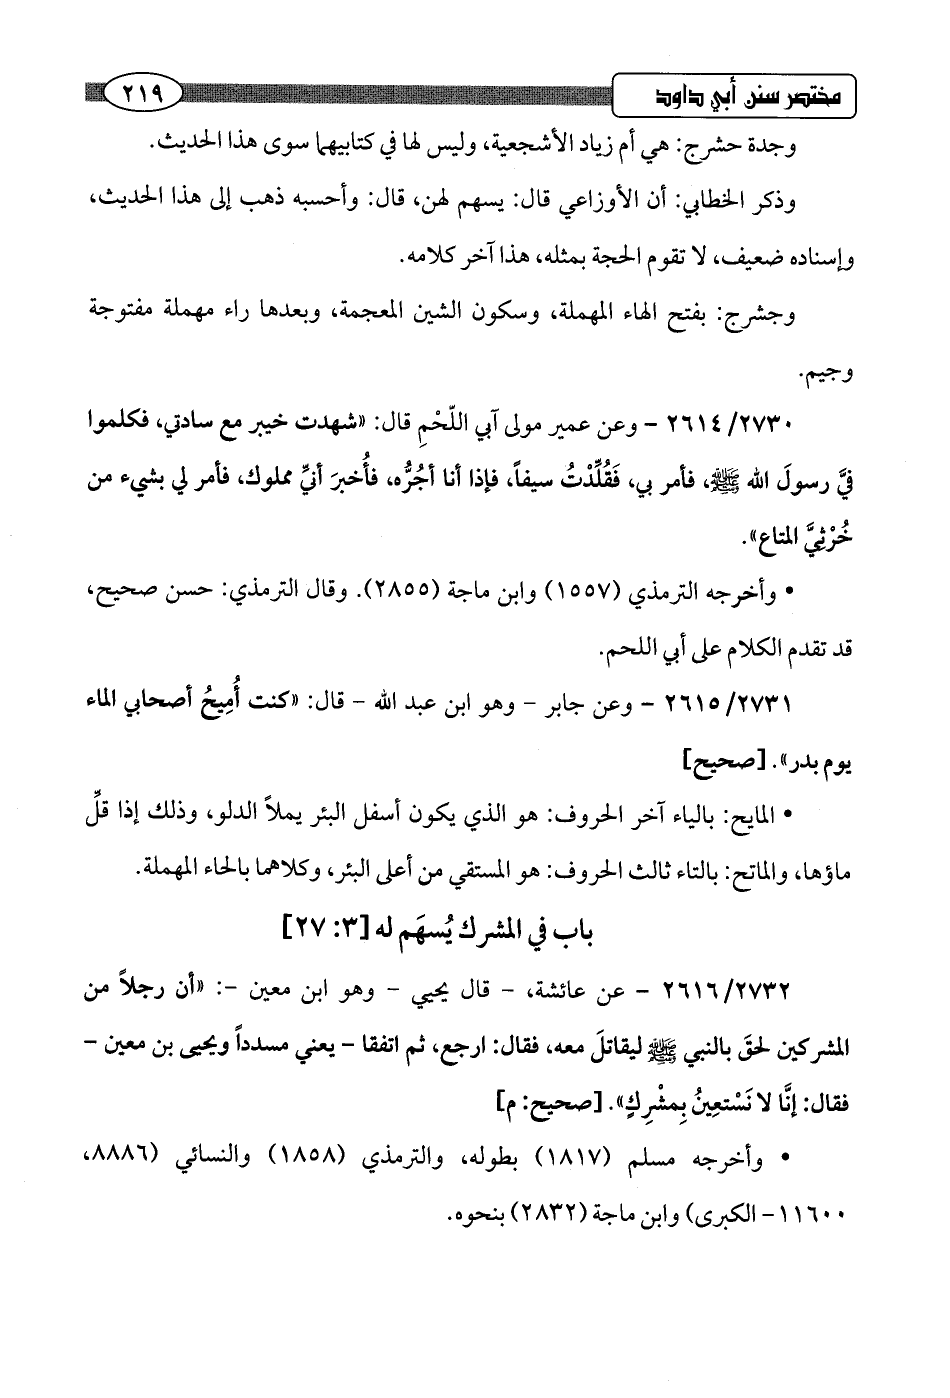 مختصر سنن أبي داود ٢١٩
وجدة حشرج: هي أم زياد الأشجعية، وليس لها في كتابيهما سوى هذا الحديث.
وذكر الخطابي: أن الأوزاعي قال: يسهم لهن، قال: وأحسبه ذهب إلى هذا الحديث،
وإسناده ضعيف، لا تقوم الحجة بمثله، هذا آخر كلامه.
وجشرج: بفتح الهاء المهملة، وسكون الشين المعجمة، وبعدها راء مهملة مفتوجة
وجيم.
٢٦١٤/٢٧٣٠ - وعن عمير مولى آبي اللَّحْمِ قال: «شهدت خيبر مع سادتي، فكلموا
فيَّ رسولَ الله ﷺ، فأمر بي، فَقُلِّدْتُ سيفاً، فإذا أنا أجُرُّه، فأُخبرَ أنيِّ مملوك، فأمر لي بشيء من
خُرْثِيَّ المتاع».
• وأخرجه الترمذي (١٥٥٧) وابن ماجة (٢٨٥٥). وقال الترمذي: حسن صحيح،
قد تقدم الكلام على أبي اللحم.
٢٦١٥/٢٧٣١ - وعن جابر - وهو ابن عبد الله - قال: «كنت أُمِيحُ أصحابي الماء
يوم بدر». [صحيح]
• المايح: بالياء آخر الحروف: هو الذي يكون أسفل البئر يملأ الدلو، وذلك إذا قلِّ
ماؤها، والماتح: بالتاء ثالث الحروف: هو المستقي من أعلى البئر، وكلاهما بالحاء المهملة.
باب في المشرك يُسهَم له [٣: ٢٧]
٢٦١٦/٢٧٣٢ - عن عائشة، - قال يحيي - وهو ابن معين -: «أن رجلاً من
المشركين لحقَ بالنبي ﷺ ليقاتلَ معه، فقال: ارجع، ثم اتفقا - يعني مسدداً ويحيى بن معين -
فقال: إنَّا لا نَسْتعِينُ بِمشْرِكٍ». [صحيح: م]
• وأخرجه مسلم (١٨١٧) بطوله، والترمذي (١٨٥٨) والنسائي (٨٨٨٦،
١١٦٠٠- الكبرى) وابن ماجة (٢٨٣٢) بنحوه.